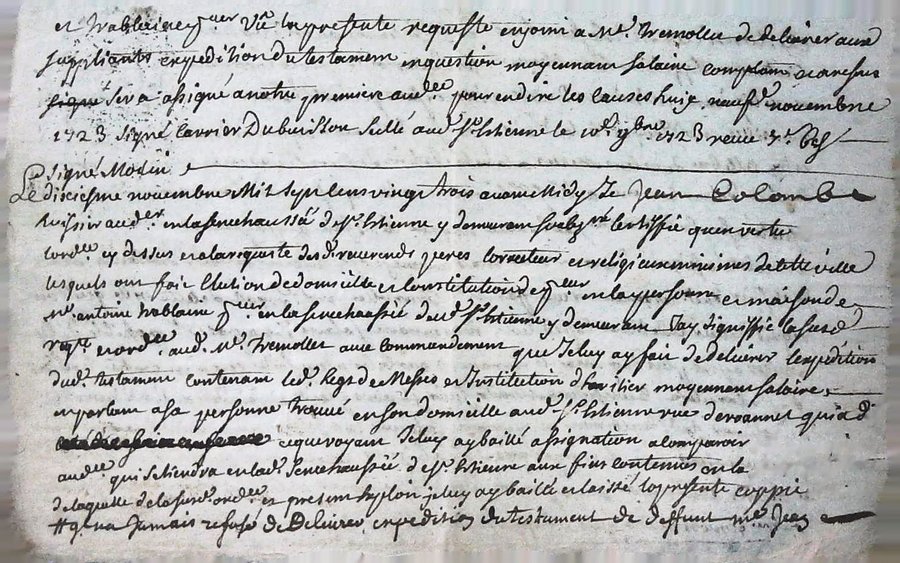 et trablaine p.eur Vû la presente requeste enjoint a Me. Tremollet de delivrer aux
suppliants expedition du testament en question moyennant salaire comptant autrement
sera assigné a notre premiere audce pour en dire les causes huit neufe novembre
1723 signé Carrier Dubuisson sellé aud. St. Etienne le 10e 9bre 1723 receu
signé Modin
Le dixiesme novembre Mil sept cens vingt trois avant Midy Je Jean Colombe
huissier auder. en la senechaussée de St. Etienne y demeurant soubsné Certiffie qu'en vertu
lordce cy dessus et a la requeste des d. reverends peres Correcteur et religieux minimes de cette ville
lesquels ont fait Election de domicille et Constitution de p.eur en la personne et maison de
me. antoine trablaine p.eur en la senechaussée dud. St. Etienne y demeurant Jay signiffié la susd.
reqte et ordce aud. Me. Tremollet aux commandement que Jeluy ay fait de delivrer lexpedition
dud. testament contenant led. legs de Messes et Institution dheritier moyennant salaire
en parlant a sa personne trouvé en son domicille aud. St. Etienne rue de roannet qui a dt
ce que voyant Jeluy ay baillé assignation a comparoir
audce qui se tiendra en lad. Senechaussée de St. Etienne aux fins contenues en la
de laquelle de la susd. ordce et present exploit jeluy ay baillé et laissé la presente coppie
# qu'il na Jamais refusé de Delivrer expedition du testament de deffunt me Jean